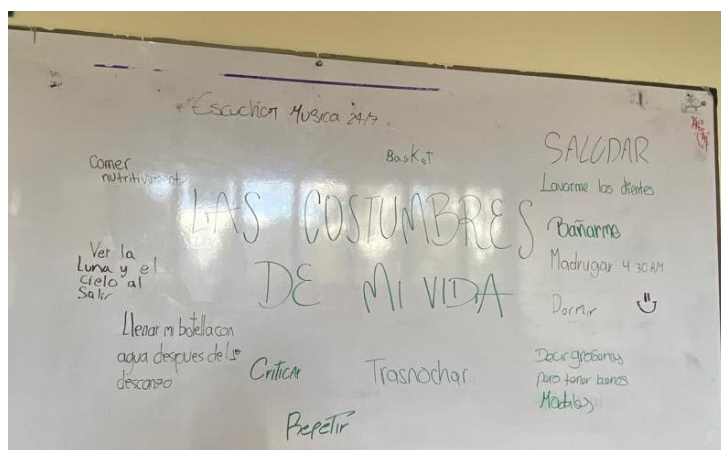 Escuchar Musica 24/7
Basket
SALUDAR
Comer
nutritivament
Lavarme los dientes
LAS COSTUMBRES
DE MI VIDA
Bañarme
Madrugar 4:30 AM
Dormir
Ver la
Luna y el
Cielo al
Salir
Llenar mi botella con
agua despues del 1º
descanso
Criticar
Trasnochar
Decir groserias
pero tener buenos
Modales
Repetir